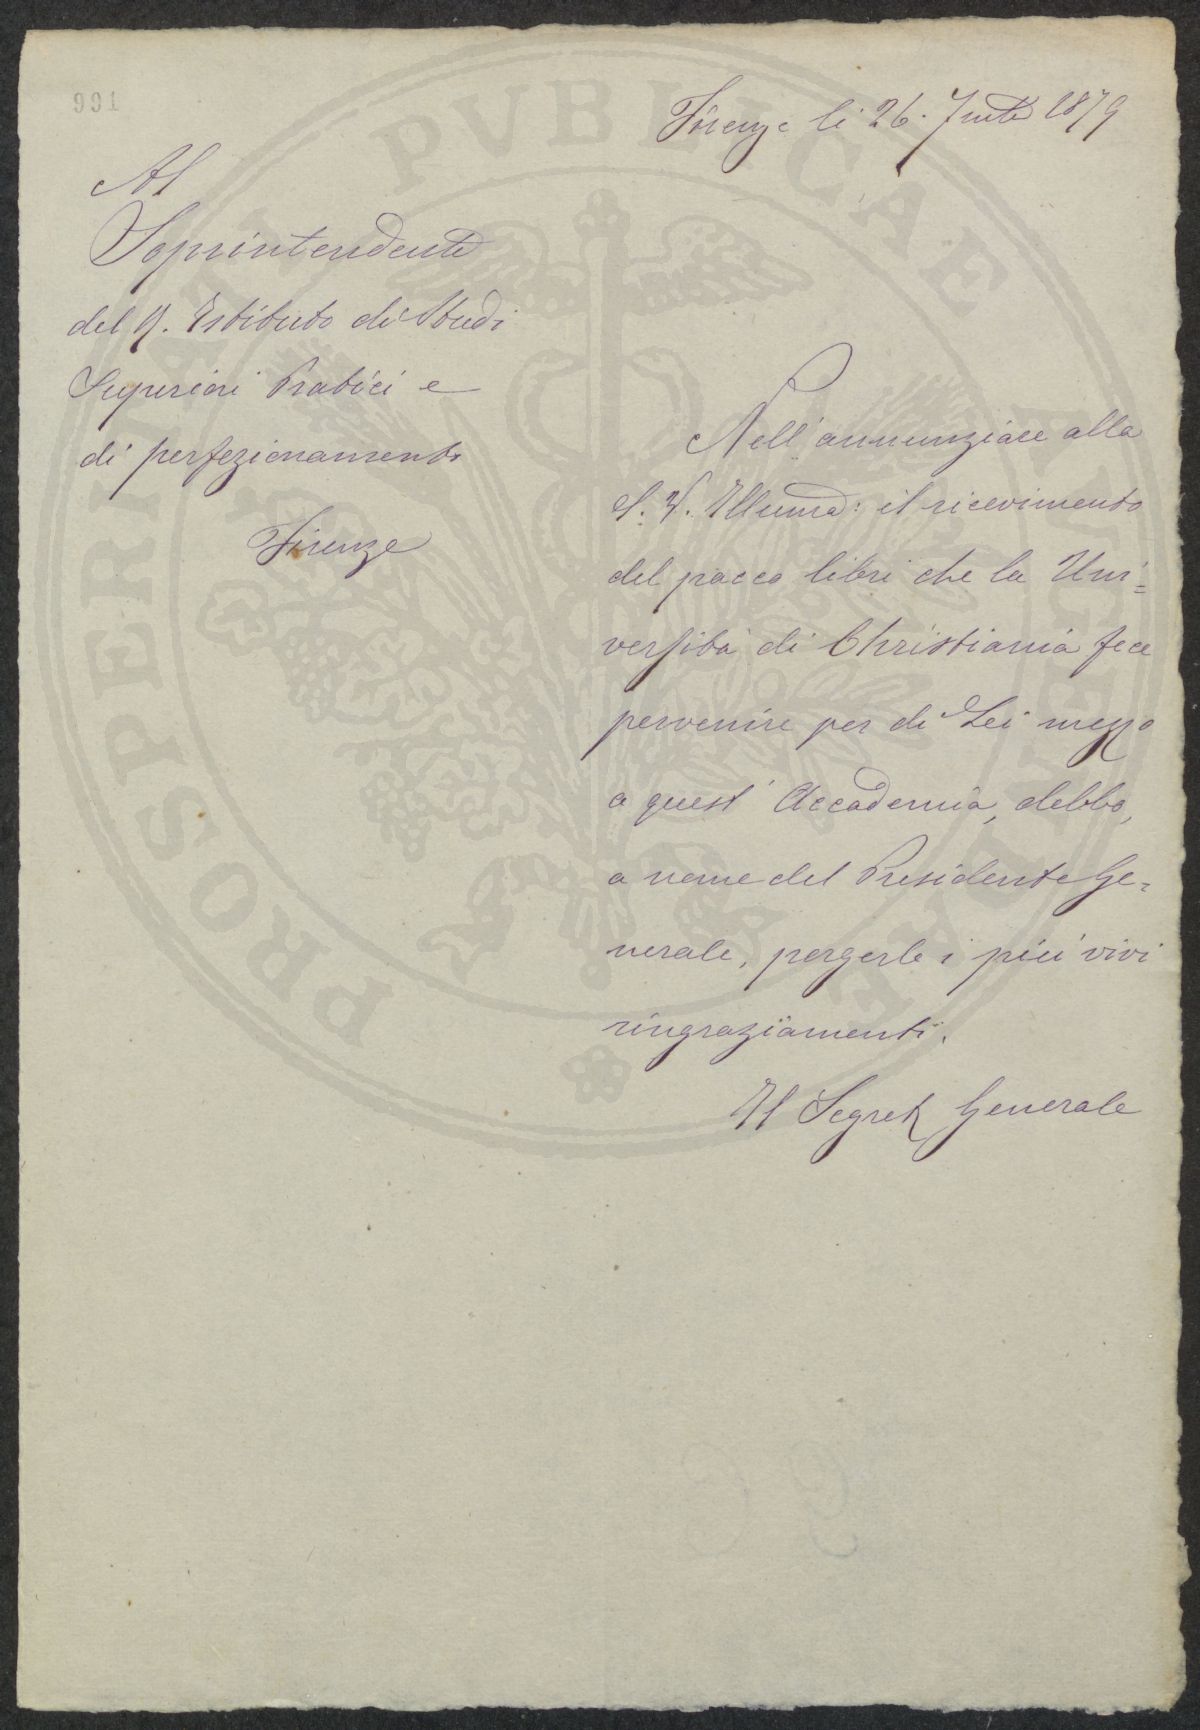 Firenze li 26. 1879
Al
Soprintendente
del R. Istituto di Studi
Superiori Pratici e
di perfezionamento
Firenze
Nell' annunziare alla
S. V. Illuma: il ricevimento
del pacco libri che la Uni=
versità di Christiania fece
pervenire per di Lei mezzo
a quest' Accademia, debbo,
a nome del Presidente Ge=
nerale, porgerle i più vivi
ringraziamenti.
Il Segret Generale
PROSPERITATI PVBLICAE AVGENDAE